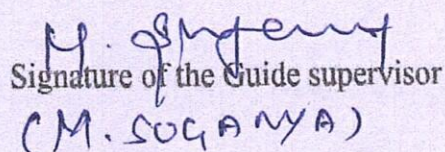 Signature of the Guide supervisor
(M. SUGANYA)